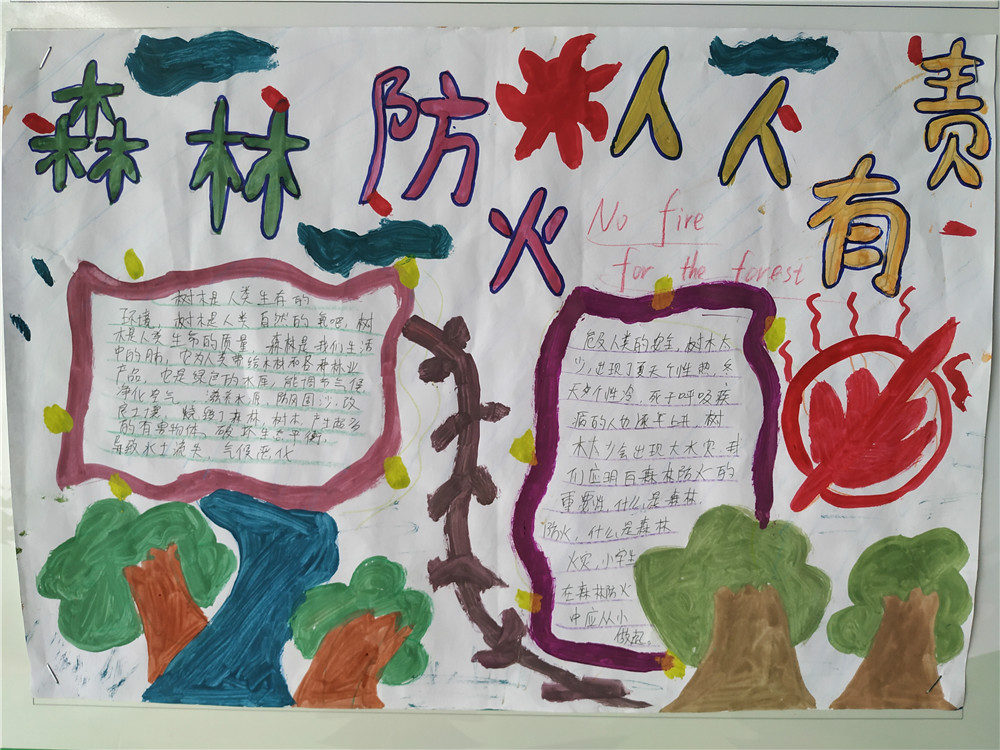 森林防火人人有责
No fire
for the forest
树木是人类生存的
环境，树木是人类自然的氧吧，树
木是人类生命的质量，森林是我们生活
中的肺，它为人类带给木材和各种林业
产品，也是绿色的水库，能调节气候
净化空气 涵养水源，防风固沙，改
良土壤，烧毁了森林，树木，产生部分
的有害物体，破坏生态平衡，
导致水土流失，气候恶化
危及人类的安全，树木太
少，出现了夏天个性热，冬
天个性冷，死于呼吸疾
病的人也速千上升，树
林少会出现大水灾，我
们应明白森林防火的
重要性，什么是森林
防火，什么是森林
火灾，小学生
在森林防火
中应从小
做起。